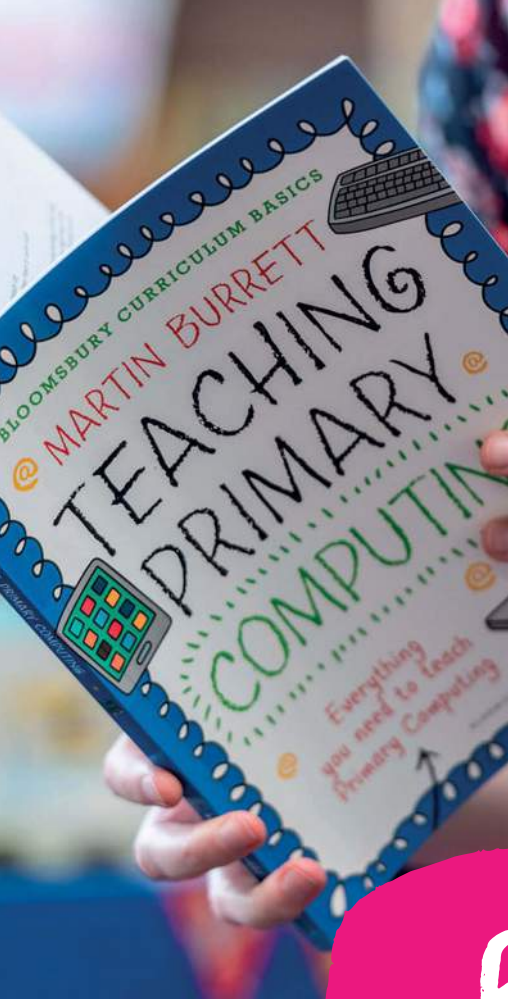 BLOOMSBURY CURRICULUM BASICS
MARTIN BURRETT
TEACHING
PRIMARY
COMPUTIN
Everything
you need to teach
Primary Computing
PRIMARY COMPUTING